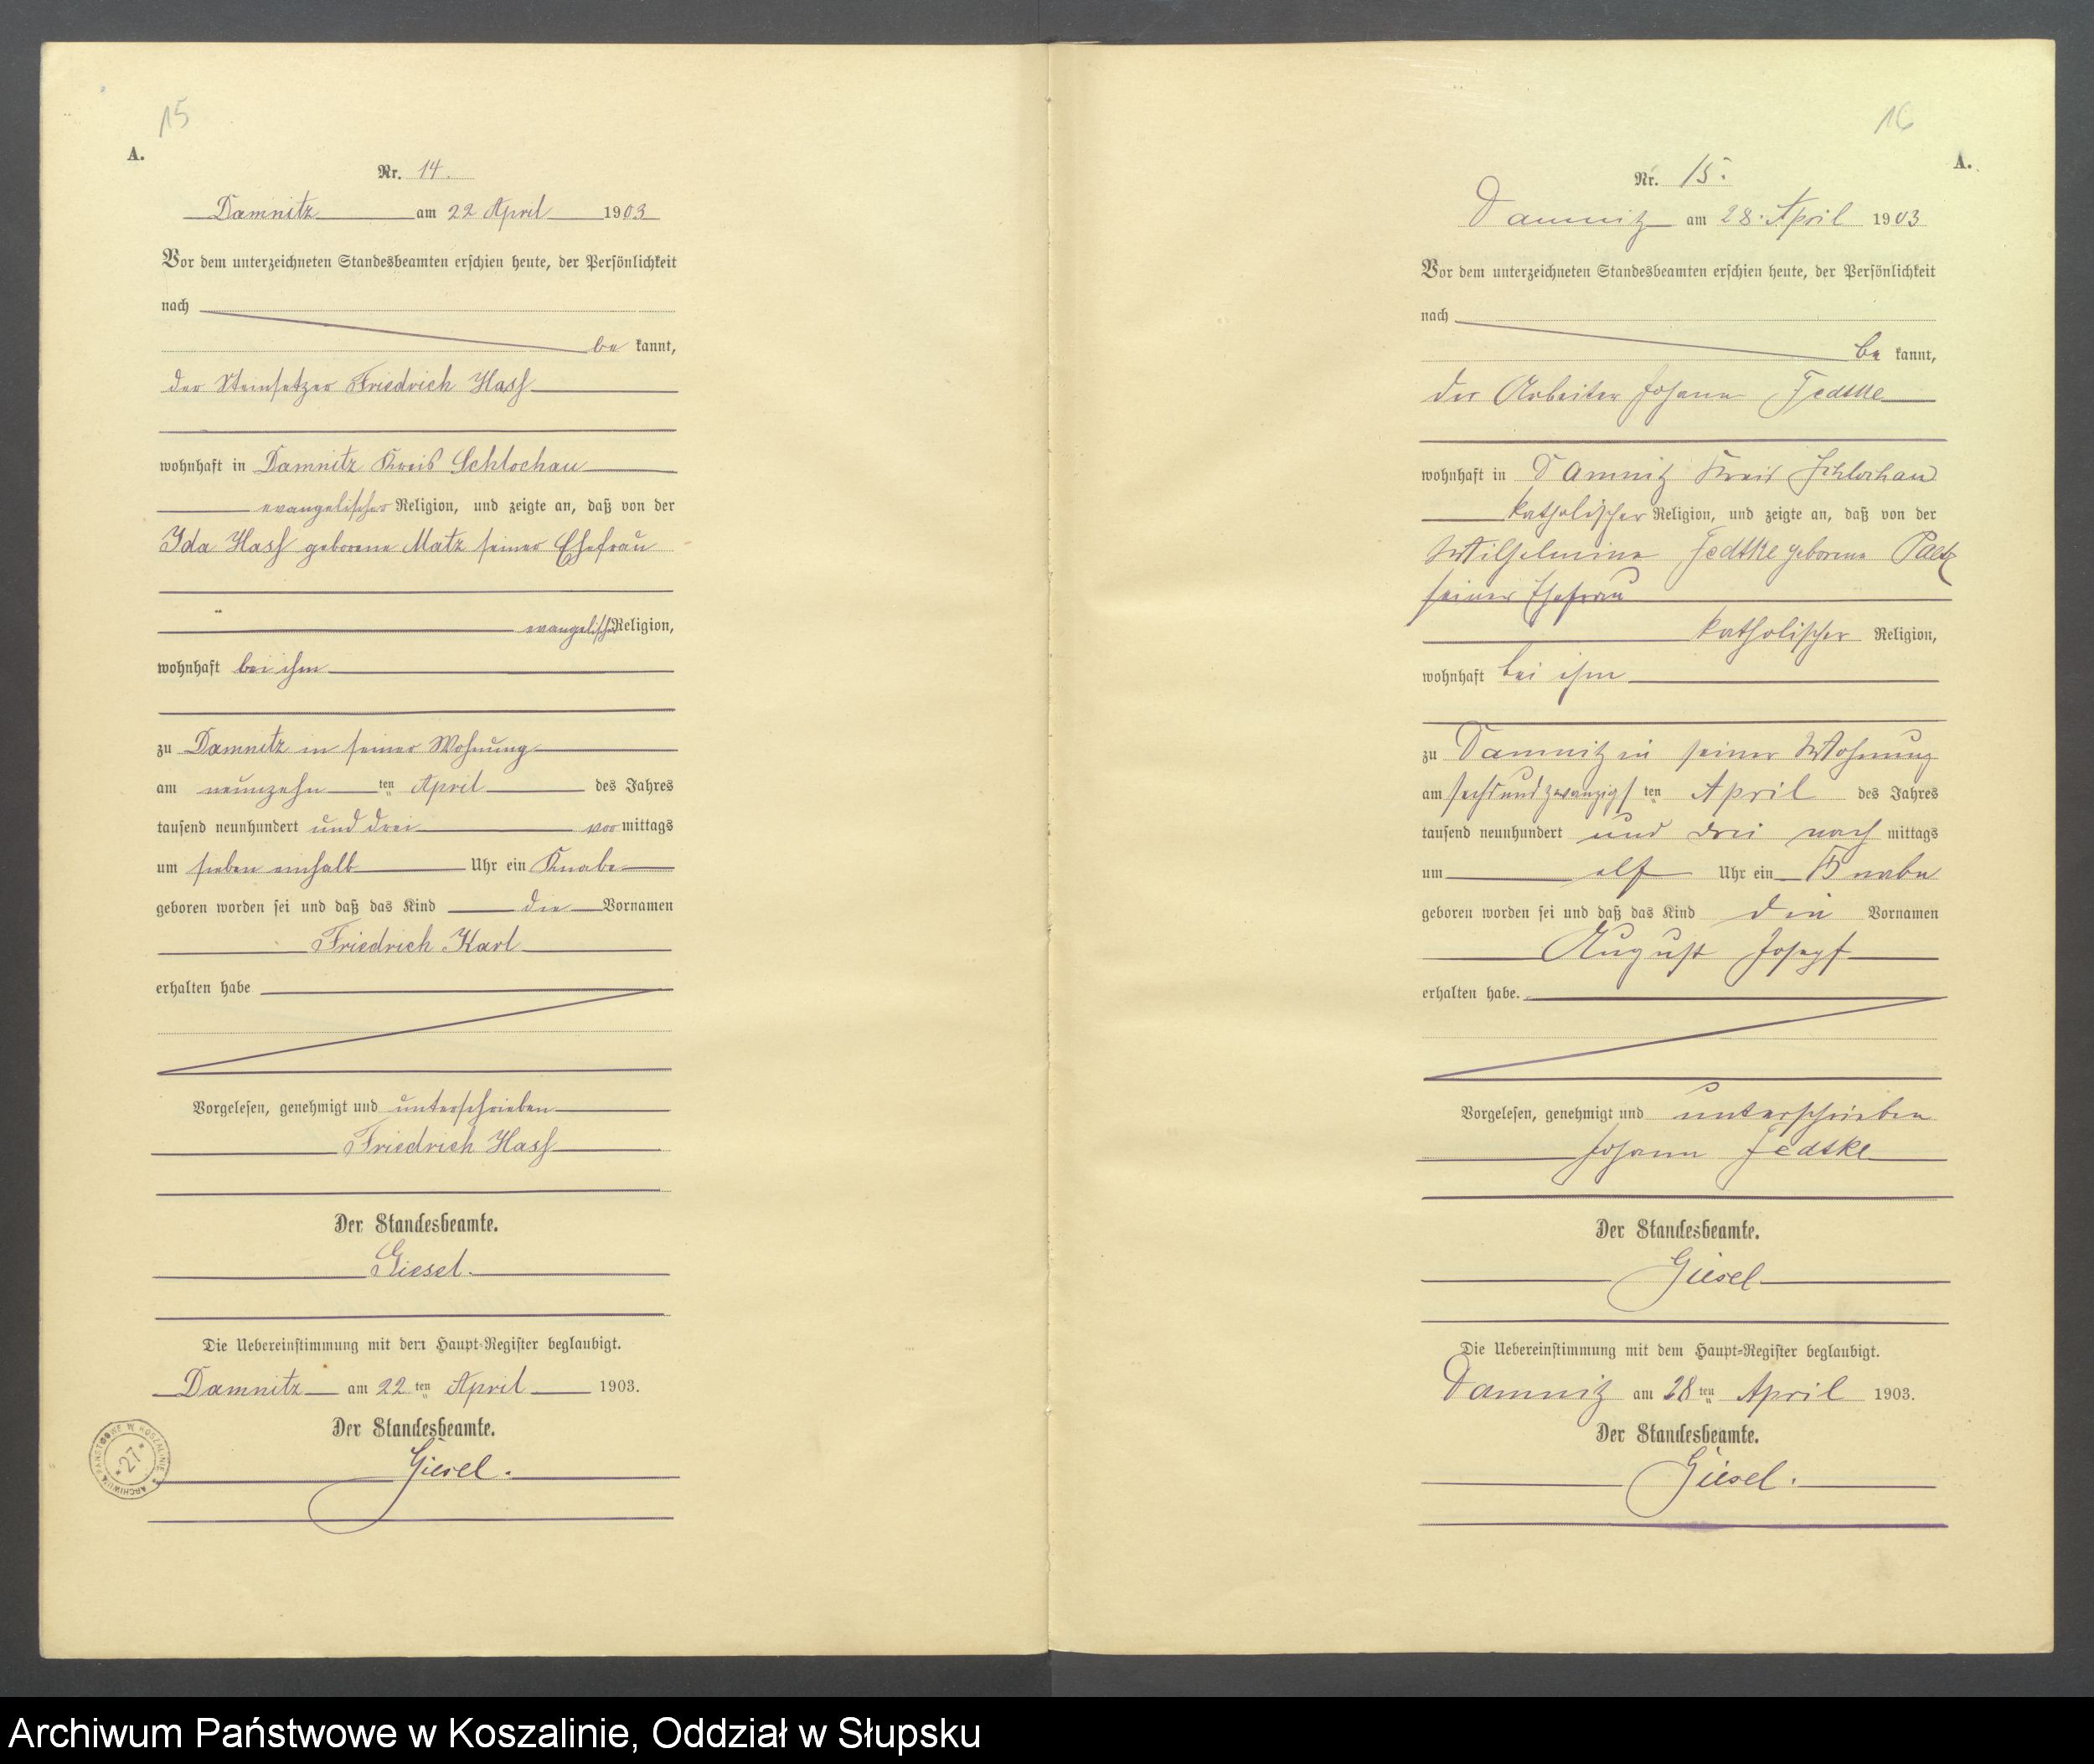 15
A.
Nr. 14.
Damnitz am 22 April 1903
Vor dem unterzeichneten Standesbeamten erschien heute, der Persönlichkeit
nach
be kannt,
der Steinsetzer Friedrich Hass
wohnhaft in Damnitz Kreis Schlochau
evangelischer Religion, und zeigte an, daß von der
Ida Hass geborene Matz seiner Ehefrau
evangelischer Religion,
wohnhaft bei ihm
zu Damnitz in seiner Wohnung
am neunzehn ten April des Jahres
tausend neunhundert und drei vor mittags
um sieben einhalb Uhr ein Knabe
geboren worden sei und daß das Kind die Vornamen
Friedrich Karl
erhalten habe
Vorgelesen, genehmigt und unterschrieben
Friedrich Hass
Der Standesbeamte.
Giesel.
Die Uebereinstimmung mit dem Haupt-Register beglaubigt.
Damnitz am 22 ten April 1903.
Der Standesbeamte.
Giesel.
ARCHIWUM PAŃSTWOWE W KOSZALINIE
*27*
16
A.
Nr. 15.
Damnitz am 28. April 1903
Vor dem unterzeichneten Standesbeamten erschien heute, der Persönlichkeit
nach
be kannt,
der Arbeiter Johann Jedtke
wohnhaft in Damnitz Kreis Schlochau
katholischer Religion, und zeigte an, daß von der
Wilhelmine Jedtke geborene
seiner Ehefrau
katholischer Religion,
wohnhaft bei ihm
zu Damnitz in seiner Wohnung
am sechsundzwanzigs ten April des Jahres
tausend neunhundert und drei nach mittags
um elf Uhr ein Knabe
geboren worden sei und daß das Kind die Vornamen
August Josef
erhalten habe.
Vorgelesen, genehmigt und unterschrieben
Johann Jedtke
Der Standesbeamte.
Giesel
Die Uebereinstimmung mit dem Haupt-Register beglaubigt.
Damnitz am 28 ten April 1903.
Der Standesbeamte.
Giesel.
Archiwum Państwowe w Koszalinie, Oddział w Słupsku